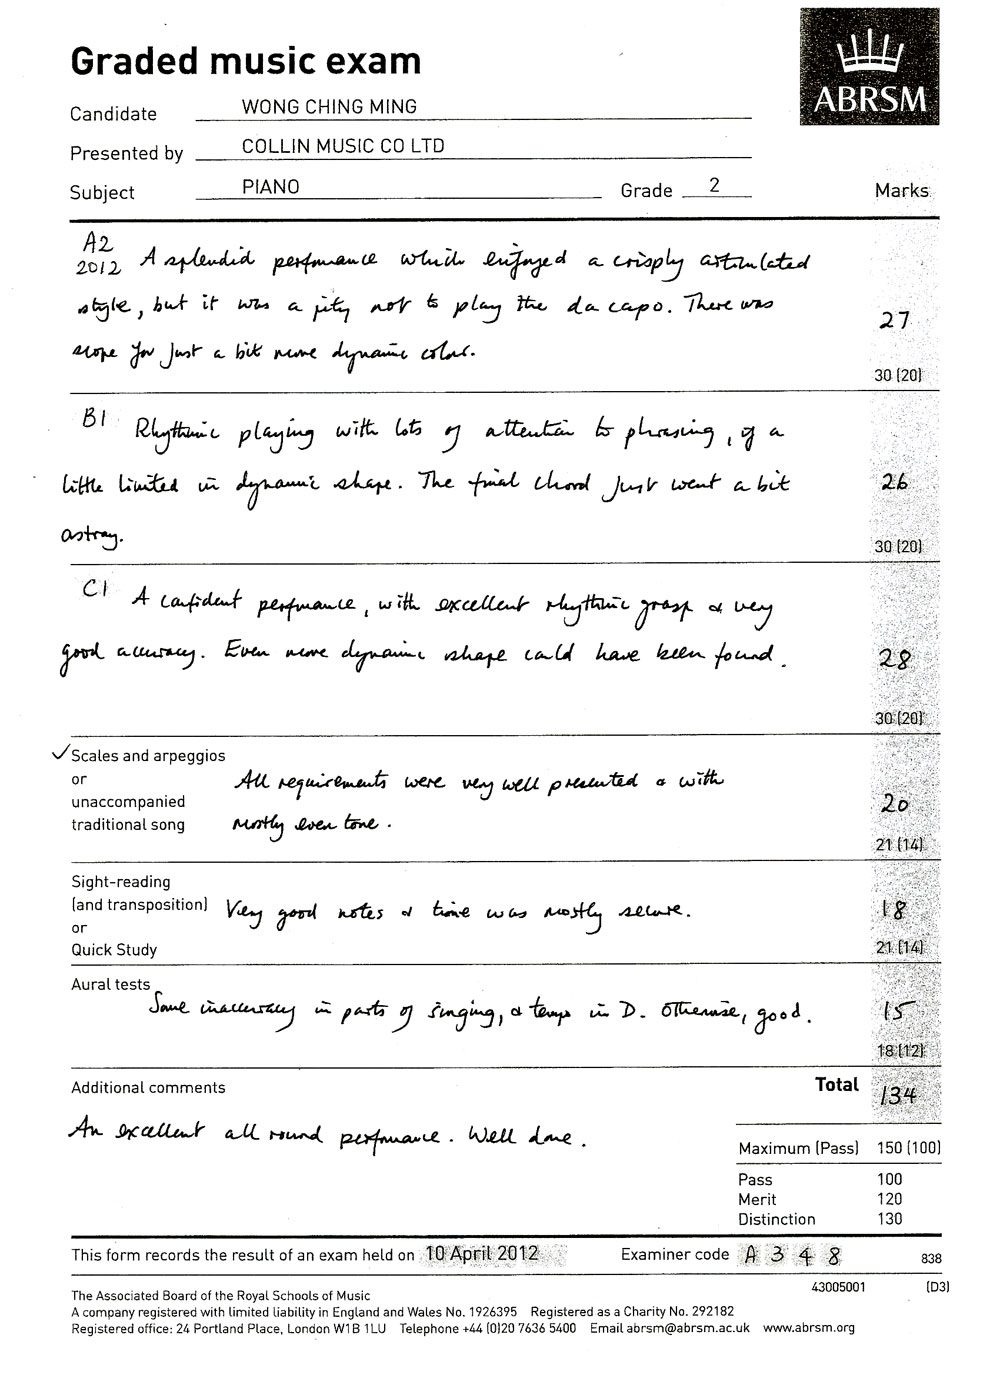 Graded music exam
ABRSM
Candidate WONG CHING MING
Presented by COLLIN MUSIC CO LTD
Subject PIANO Grade 2 Marks
A2
2012 A splendid performance which enjoyed a crisply articulated
style, but it was a pity not to play the da capo. There was
27
scope for just a bit more dynamic colour.
30 (20)
B1 Rhythmic playing with lots of attention to phrasing, if a
little limited in dynamic shape. The final chord just went a bit
26
astray.
30 (20)
C1 A confident performance, with excellent rhythmic grasp & very
good accuracy. Even more dynamic shape could have been found.
28
30 (20)
✓ Scales and arpeggios
or
unaccompanied
traditional song
All requirements were very well presented & with
mostly even tone.
20
21 (14)
Sight-reading
(and transposition)
or
Quick Study
Very good notes & time was mostly secure.
18
21 (14)
Aural tests
Some inaccuracy in parts of singing, & tempo in D. Otherwise, good.
15
18 (12)
Additional comments
Total 134
An excellent all round performance. Well done.
Maximum (Pass) 150 (100)
Pass 100
Merit 120
Distinction 130
This form records the result of an exam held on 10 April 2012 Examiner code A 3 4 8 838
43005001 (D3)
The Associated Board of the Royal Schools of Music
A company registered with limited liability in England and Wales No. 1926395 Registered as a Charity No. 292182
Registered office: 24 Portland Place, London W1B 1LU Telephone +44 (0)20 7636 5400 Email abrsm@abrsm.ac.uk www.abrsm.org